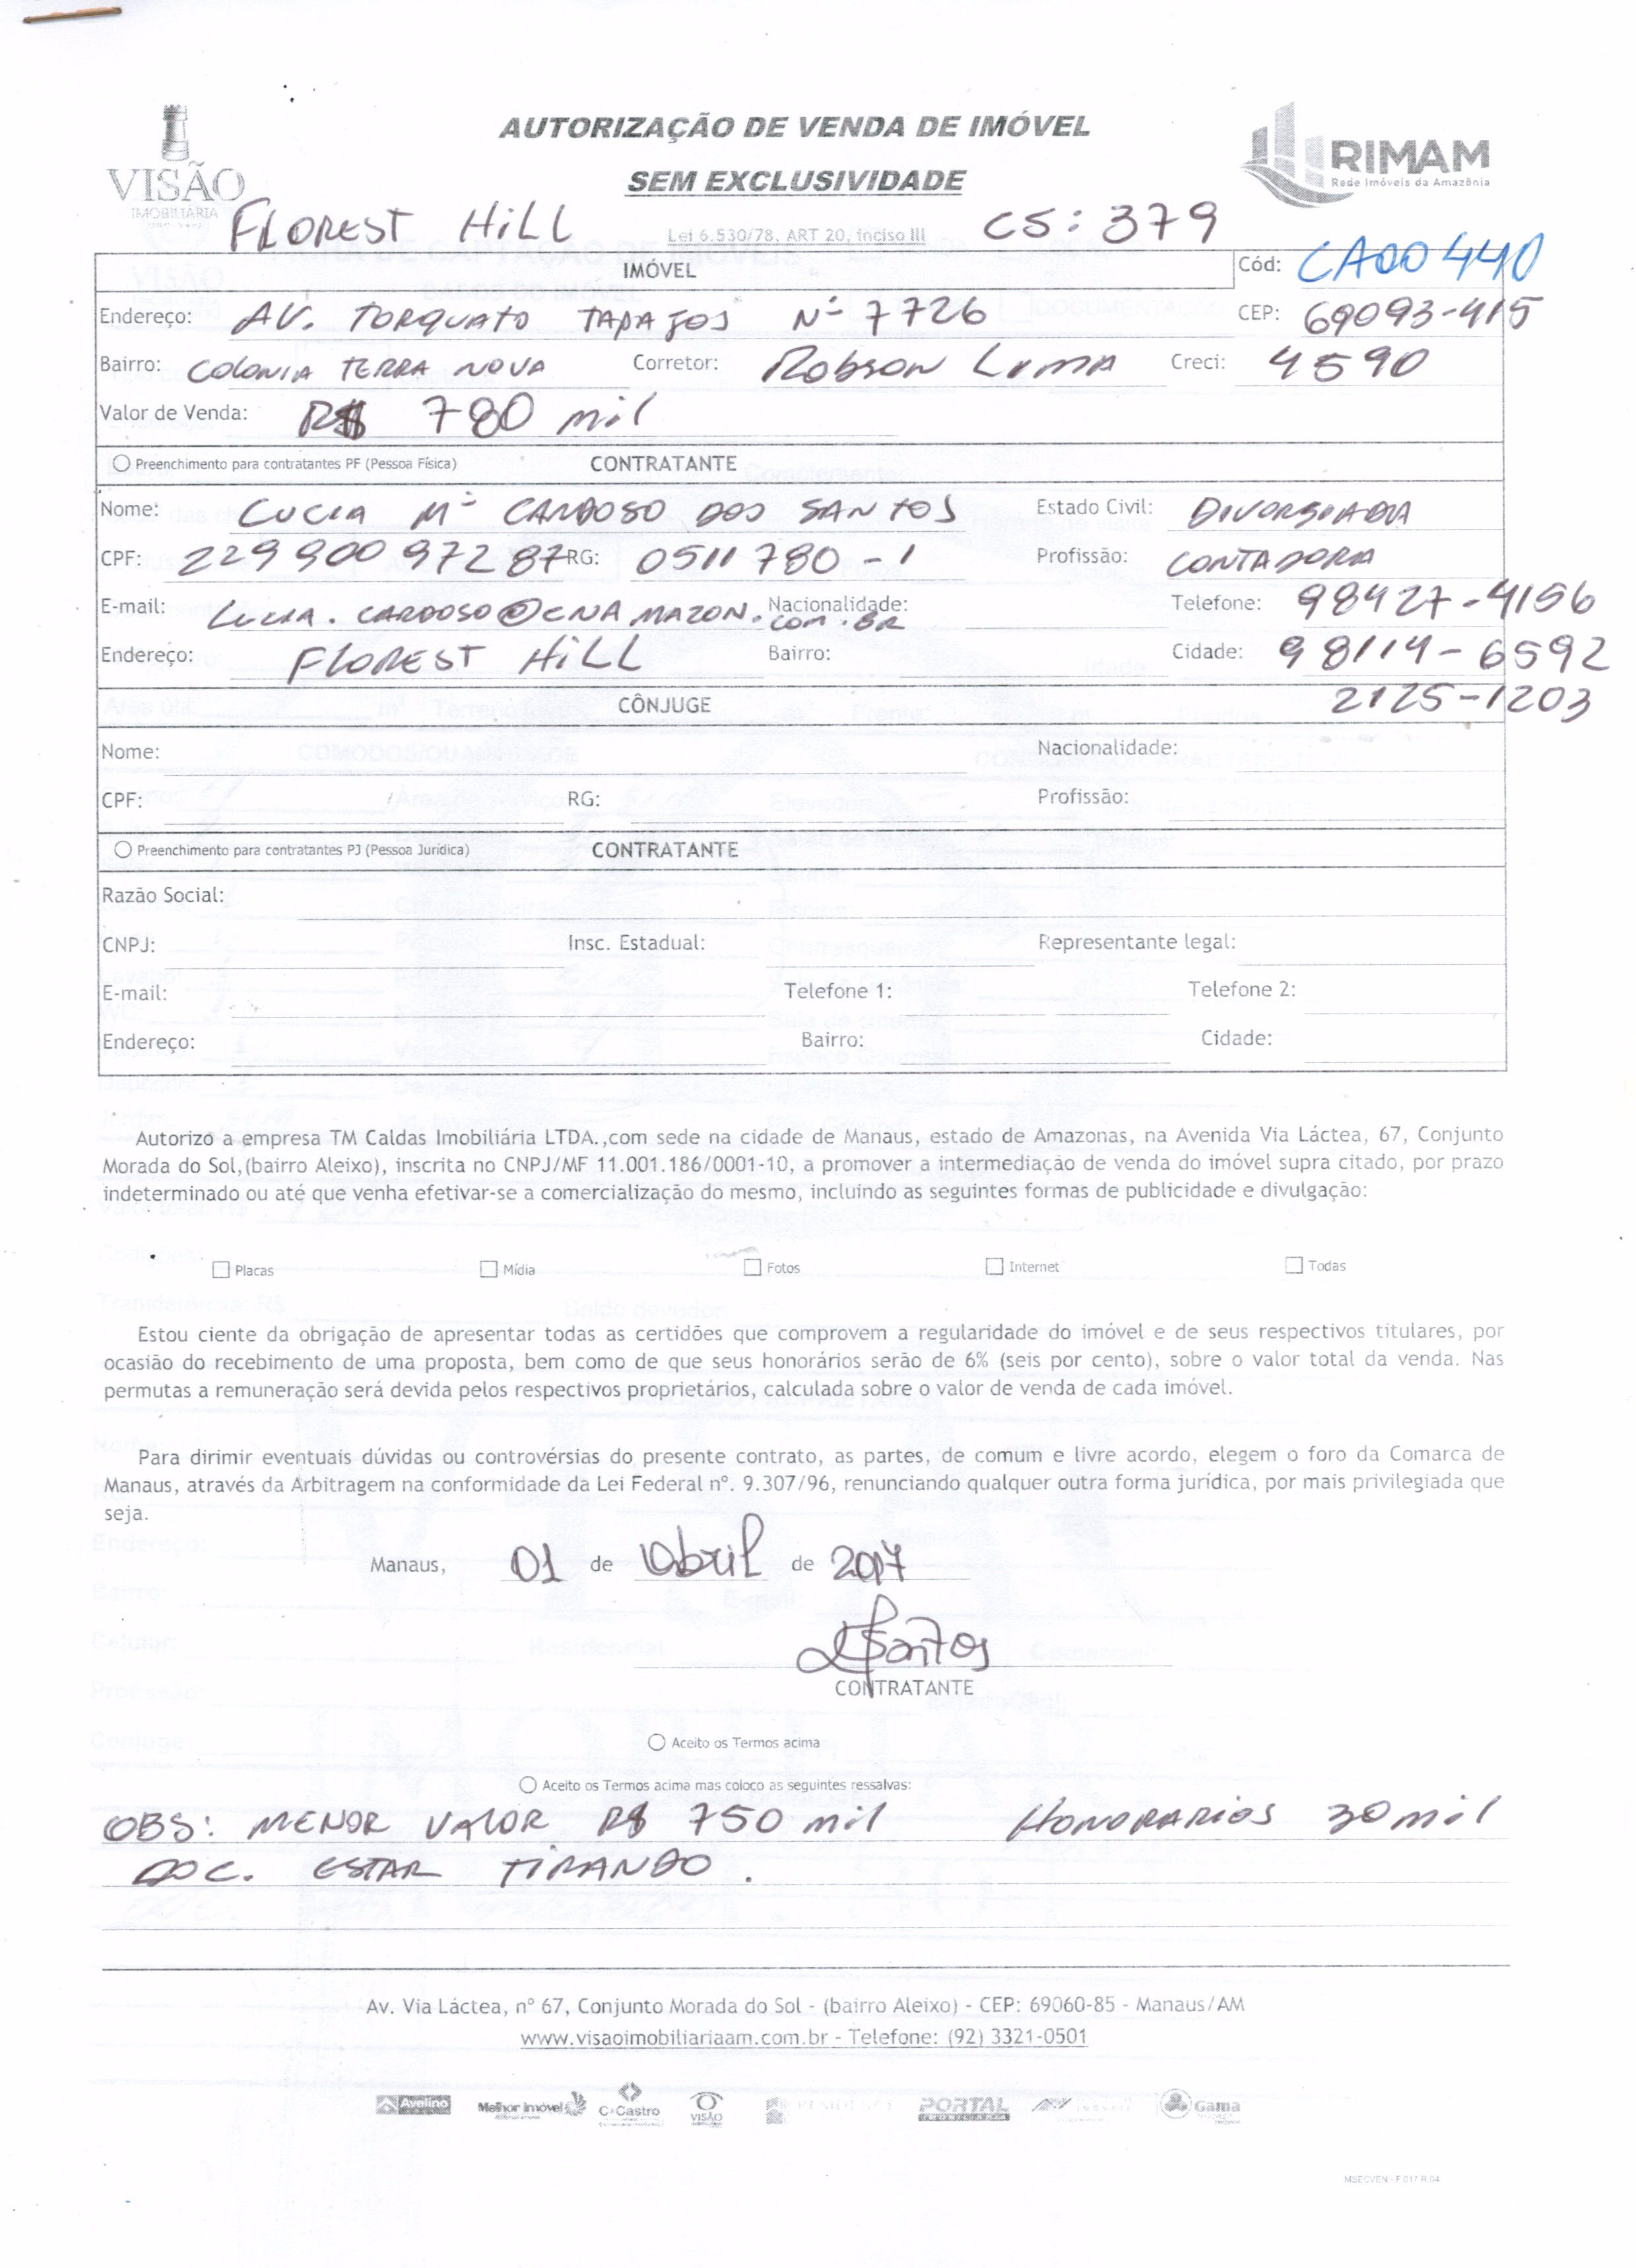 AUTORIZAÇÃO DE VENDA DE IMÓVEL
SEM EXCLUSIVIDADE
VISÃO
IMOBILIÁRIA
RIMAM
Rede Imóveis da Amazônia
FLOREST HILL Lei 6.530/78, ART 20, inciso III CS: 379
IMÓVEL Cód: CA00440
Endereço: AV. TORQUATO TAPAJOS Nº 7726 CEP: 69093-415
Bairro: COLONIA TERRA NOVA Corretor: ROBSON LIMA Creci: 4590
Valor de Venda: R$ 780 mil
Preenchimento para contratantes PF (Pessoa Física) CONTRATANTE
Nome: LUCIA Mª CARDOSO DOS SANTOS Estado Civil: DIVORSIADA
CPF: 229 900 972 87 RG: 0511780-1 Profissão: CONTADORA
E-mail: LUCIA.CARDOSO@CNAMAZON.COM.BR Nacionalidade: Telefone: 98427-4156
Endereço: FLOREST HILL Bairro: Cidade: 98114-6592
CÔNJUGE 2125-1203
Nome: Nacionalidade:
CPF: RG: Profissão:
Preenchimento para contratantes PJ (Pessoa Jurídica) CONTRATANTE
Razão Social:
CNPJ: Insc. Estadual: Representante legal:
E-mail: Telefone 1: Telefone 2:
Endereço: Bairro: Cidade:
Autorizo a empresa TM Caldas Imobiliária LTDA.,com sede na cidade de Manaus, estado de Amazonas, na Avenida Via Láctea, 67, Conjunto
Morada do Sol,(bairro Aleixo), inscrita no CNPJ/MF 11.001.186/0001-10, a promover a intermediação de venda do imóvel supra citado, por prazo
indeterminado ou até que venha efetivar-se a comercialização do mesmo, incluindo as seguintes formas de publicidade e divulgação:
Placas Mídia Fotos Internet Todas
Estou ciente da obrigação de apresentar todas as certidões que comprovem a regularidade do imóvel e de seus respectivos titulares, por
ocasião do recebimento de uma proposta, bem como de que seus honorários serão de 6% (seis por cento), sobre o valor total da venda. Nas
permutas a remuneração será devida pelos respectivos proprietários, calculada sobre o valor de venda de cada imóvel.
Para dirimir eventuais dúvidas ou controvérsias do presente contrato, as partes, de comum e livre acordo, elegem o foro da Comarca de
Manaus, através da Arbitragem na conformidade da Lei Federal nº. 9.307/96, renunciando qualquer outra forma jurídica, por mais privilegiada que
seja.
Manaus, 01 de Abril de 2017
Santos
CONTRATANTE
Aceito os Termos acima
Aceito os Termos acima mas coloco as seguintes ressalvas:
OBS: MENOR VALOR R$ 750 mil HONORARIOS 30 mil
DOC. ESTAR TIRANDO.
Av. Via Láctea, nº 67, Conjunto Morada do Sol - (bairro Aleixo) - CEP: 69060-85 - Manaus/AM
www.visaoimobiliariaam.com.br - Telefone: (92) 3321-0501
Avelino Melhor Imóvel C.Castro VISÃO PORTAL Gama
MSECVEN - F.017 R.04